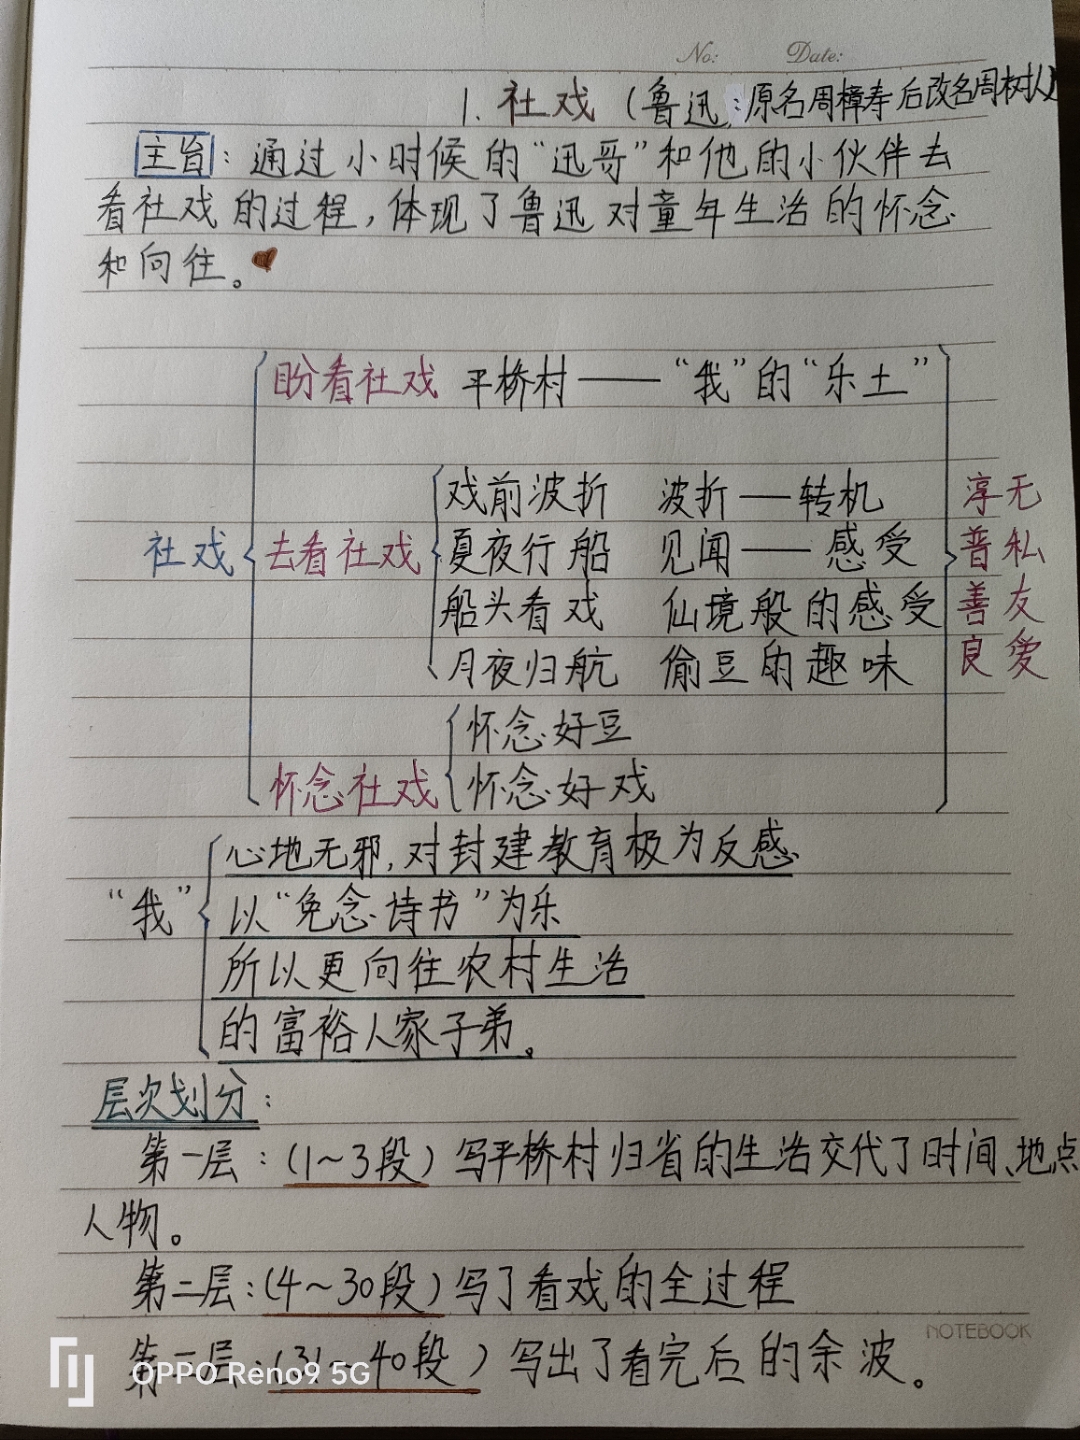 No: Date:
1. 社戏 (鲁迅:原名周樟寿后改名周树人)
主旨: 通过小时候的“迅哥”和他的小伙伴去
看社戏的过程,体现了鲁迅对童年生活的怀念
和向往。
盼看社戏 平桥村——“我”的“乐土”
戏前波折 波折——转机
社戏 去看社戏 夏夜行船 见闻——感受
船头看戏 仙境般的感受
月夜归航 偷豆的趣味
淳无
普私
善友
良爱
怀念好豆
怀念社戏 怀念好戏
心地无邪,对封建教育极为反感
“我” 以“免念诗书”为乐
所以更向往农村生活
的富裕人家子弟。
层次划分:
第一层:(1~3段)写平桥村归省的生活交代了时间、地点
人物。
第二层:(4~30段)写了看戏的全过程
第三层:(31~40段)写出了看完后的余波。
NOTEBOOK
OPPO Reno9 5G